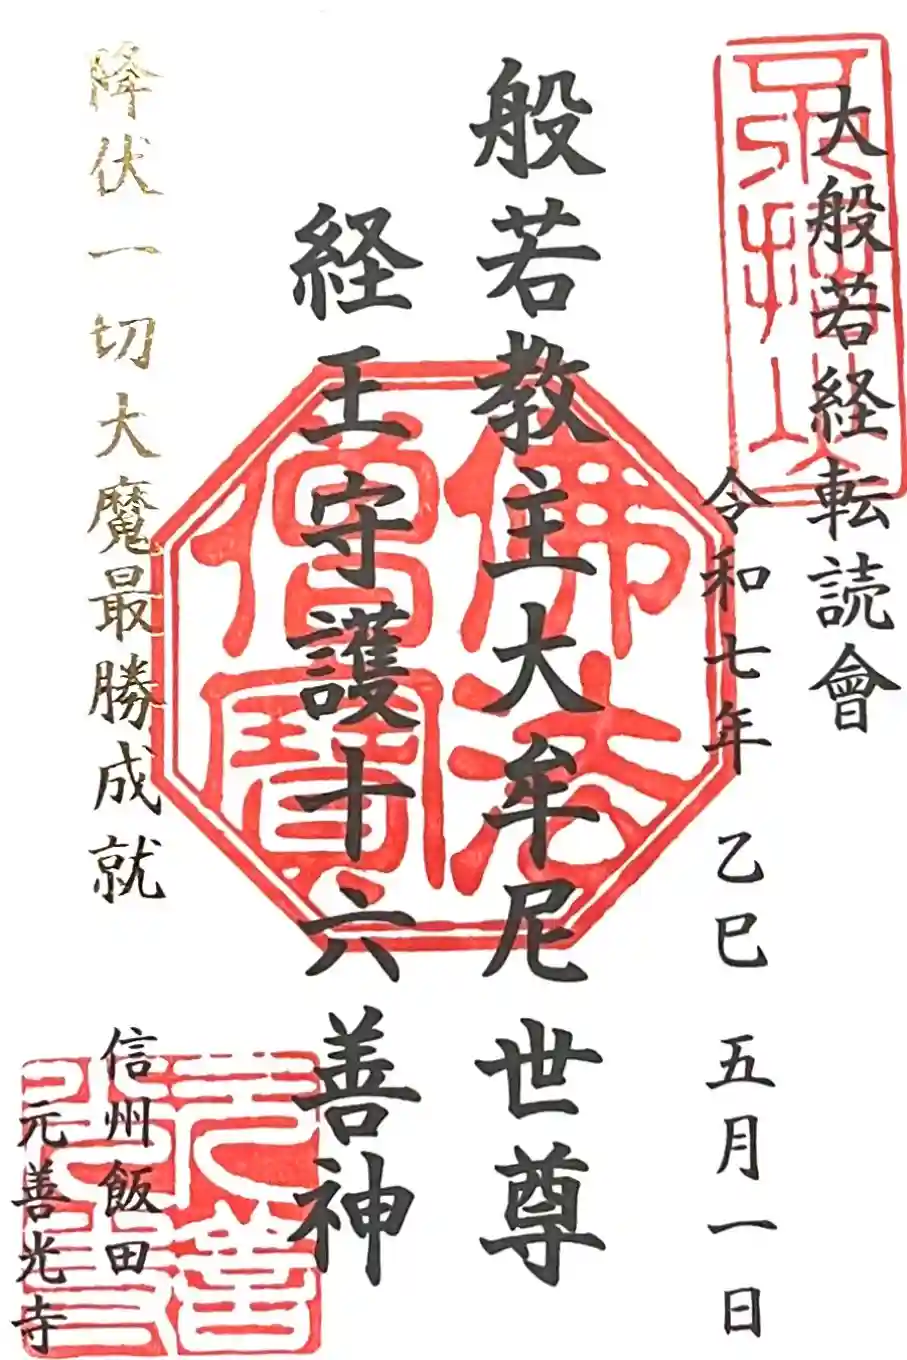 大般若経転読會
令和七年 乙巳 五月一日
般若教主大牟尼世尊
経王守護十六善神
降伏一切大魔最勝成就
信州飯田
元善光寺
佛法
僧寳
元善
光寺